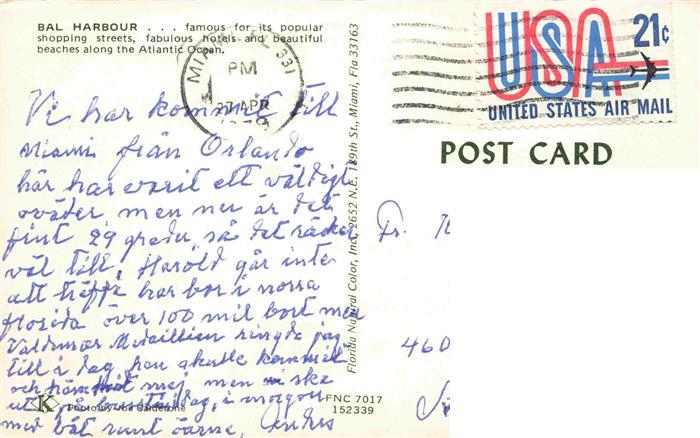 BAL HARBOUR . . . famous for its popular
shopping streets, fabulous hotels and beautiful
beaches along the Atlantic Ocean.
MIAMI, FL 331
PM
27 APR
USA 21c
UNITED STATES AIR MAIL
POST CARD
Vi har kommit till
Miami från Orlando
här har varit ett väldigt
oväder men nu är det
fint 29 grader, så det räcker
väl till, Harold går inte
att träffa han bor i norra
Florida över 100 mil bort men
Valdemar ringde jag
till i dag, han skulle komma
och mej, men vi ska
ut på i morgon
med båt runt öarna,
Fr.
460
Florida Natural Color, Inc., 2652 N.E. 189th St., Miami, Fla 33163
K Photo by Joe Calderone
FNC 7017
152339